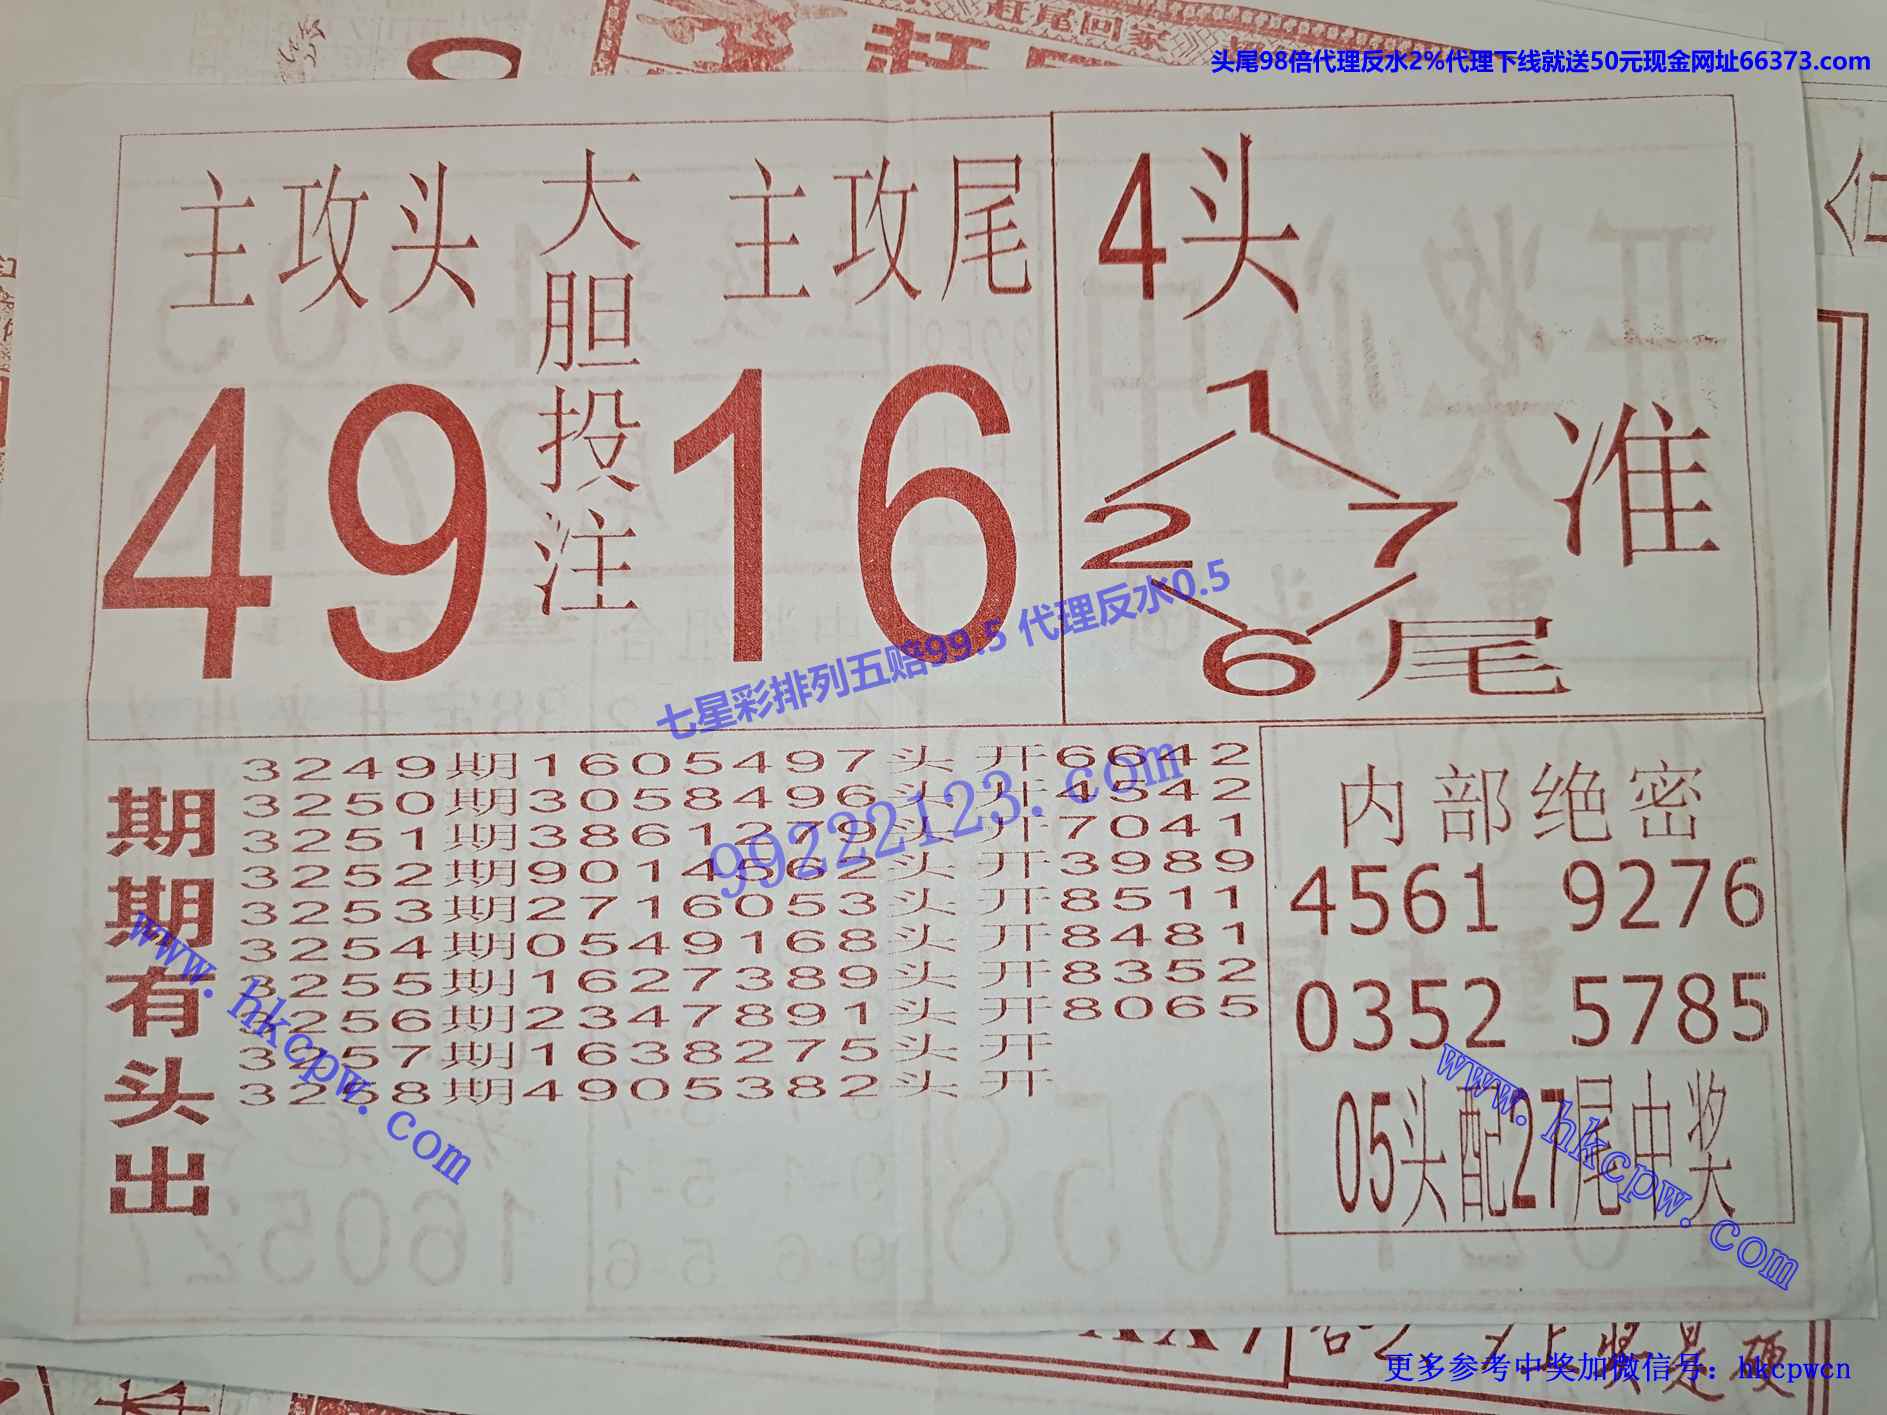 赶尾回家
头尾98倍代理反水2%代理下线就送50元现金网址66373.com
主攻头
大胆投注
主攻尾
49
16
4头
1
2 7
准
6尾
七星彩排列五赔99.5 代理反水0.5
99222123.com
期期有头出
3249期1605497头 开6642
3250期3058496头 开4342
3251期3861279头 开7041
3252期9014562头 开3989
3253期2716053头 开8511
3254期0549168头 开8481
3255期1627389头 开8352
3256期2347891头 开8065
3257期1638275头 开
3258期4905382头 开
内部绝密
4561 9276
0352 5785
05头配27尾中奖
www.hkcpw.com
www.hkcpw.com
更多参考中奖加微信号：hkcpwcn